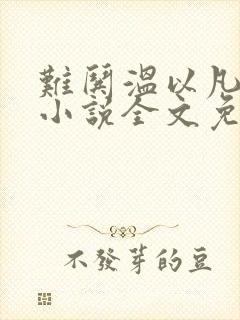 難鬨溫以凡
小說全文免
不發芽的豆